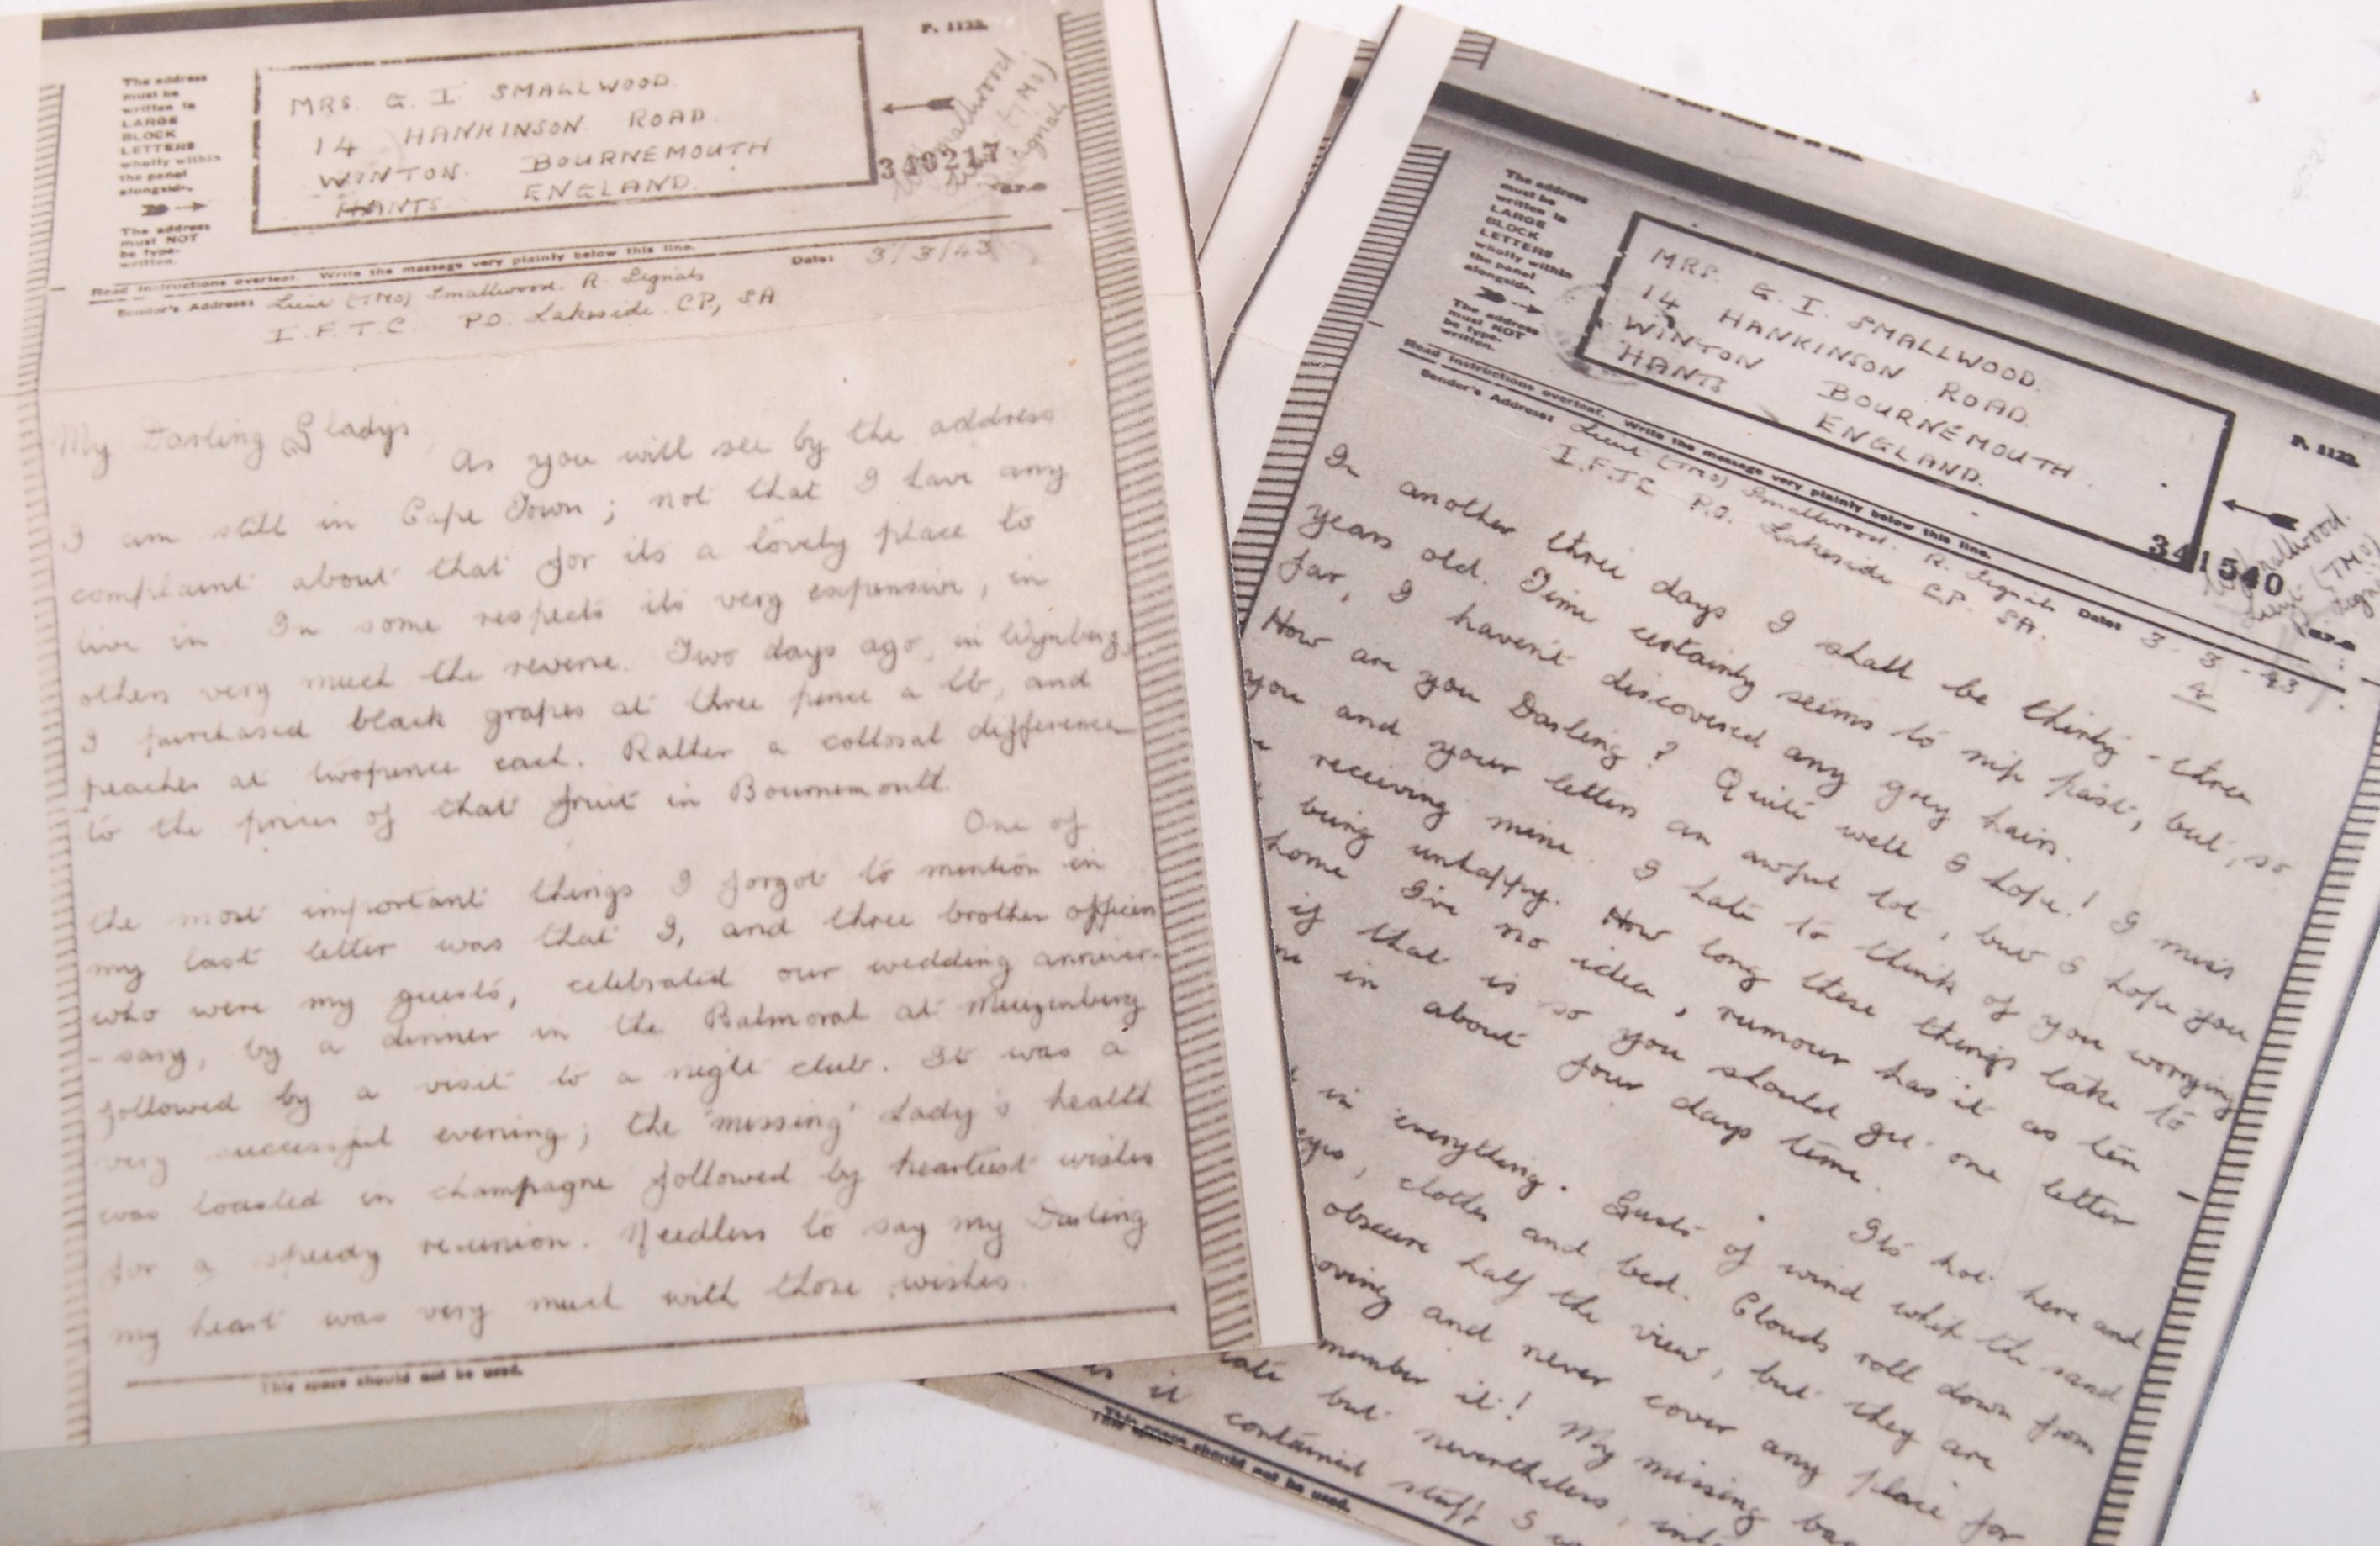 P. 1122.
The address
must be
written in
LARGE
BLOCK
LETTERS
wholly within
the panel
alongside.
The address
must NOT
be type-
written.
MRS. G. I SMALLWOOD.
14 HANKINSON ROAD.
WINTON. BOURNEMOUTH
HANTS. ENGLAND.
340217
Smallwood
(TMO)
Signals
Read instructions overleaf. Write the message very plainly below this line.
Date: 3/3/43
Sender's Address: Lieut (TMO) Smallwood. R. Signals
I.F.T.C. P.O. Lakeside. C.P, SA
My Darling Gladys,
As you will see by the address
I am still in Cape Town; not that I have any
complaint about that for its a lovely place to
live in. In some respects its very expensive, in
others very much the reverse. Two days ago, in Wynberg,
I purchased black grapes at three pence a lb, and
peaches at twopence each. Rather a collosal difference
to the prices of that fruit in Bournemouth.
One of
the most important things I forgot to mention in
my last letter was that I, and three brother officers
who were my guests, celebrated our wedding anniver-
-sary, by a dinner in the Balmoral at Muizenberg
followed by a visit to a night club. It was a
very successful evening; the 'missing' Lady's health
was toasted in champagne followed by heartiest wishes
for a speedy re-union. Needless to say my Darling
my heart was very much with those wishes.
This space should not be used.
The address
must be
written in
LARGE
BLOCK
LETTERS
wholly within
the panel
alongside.
The address
must NOT
be type-
written.
MRS. G. I. SMALLWOOD.
14 HANKINSON ROAD.
WINTON BOURNEMOUTH.
HANTS ENGLAND.
P. 1122.
341540
Smallwood.
Lieut (TMO)
Signals
Read instructions overleaf. Write the message very plainly below this line.
Sender's Address: Lieut (TMO) Smallwood. R. Signals Date: 3 - 3 - 43
I.F.T.C P.O. Lakeside C.P. SA.
In another three days I shall be thirty-three
years old. Time certainly seems to nip past, but, so
far, I haven't discovered any grey hairs.
How are you Darling? Quite well I hope! I miss
you and your letters an awful lot, but I hope you
receiving mine. I hate to think of you worrying
being unhappy. How long these things take to
home I've no idea, rumour has it as ten
if that is so you should get one letter
in about four days time.
Its hot here and
in everything. Gusts of wind whip the sand
eyes, clothes and bed. Clouds roll down from
obscure half the view, but they are
moving and never cover any place for
member it! My missing
late but nevertheless,
it contained stuff I
This space should not be used.